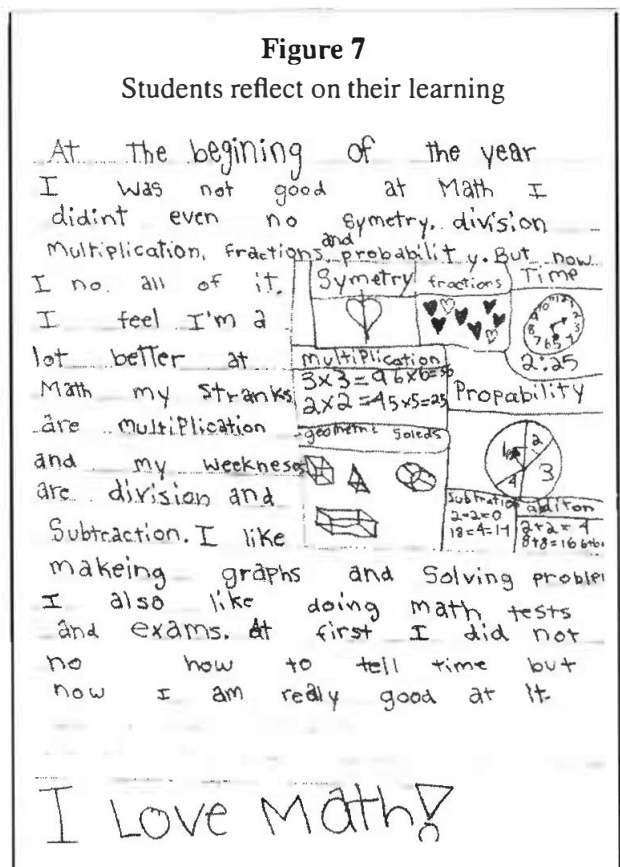 Figure 7
Students reflect on their learning
At the begining of the year
I was not good at Math I
didint even no symetry, division
multiplication, fractions, and probability. But now
I no all of it.
I feel I'm a
lot better at
Math my stranks
are multiplication
and my weekneses
are division and
Subtraction. I like
makeing graphs and Solving problem
I also like doing math tests
and exams. At first I did not
no how to tell time but
now I am really good at it.
Symetry
fractions
Time
2:25
multiplication
3x3=9 6x6=36
2x2=4 5x5=25
Propability
1 2
4 3
geometric Soleds
Subtration
2-2=0
18=4=14
additon
2+2=4
8+8=16
I Love Math!